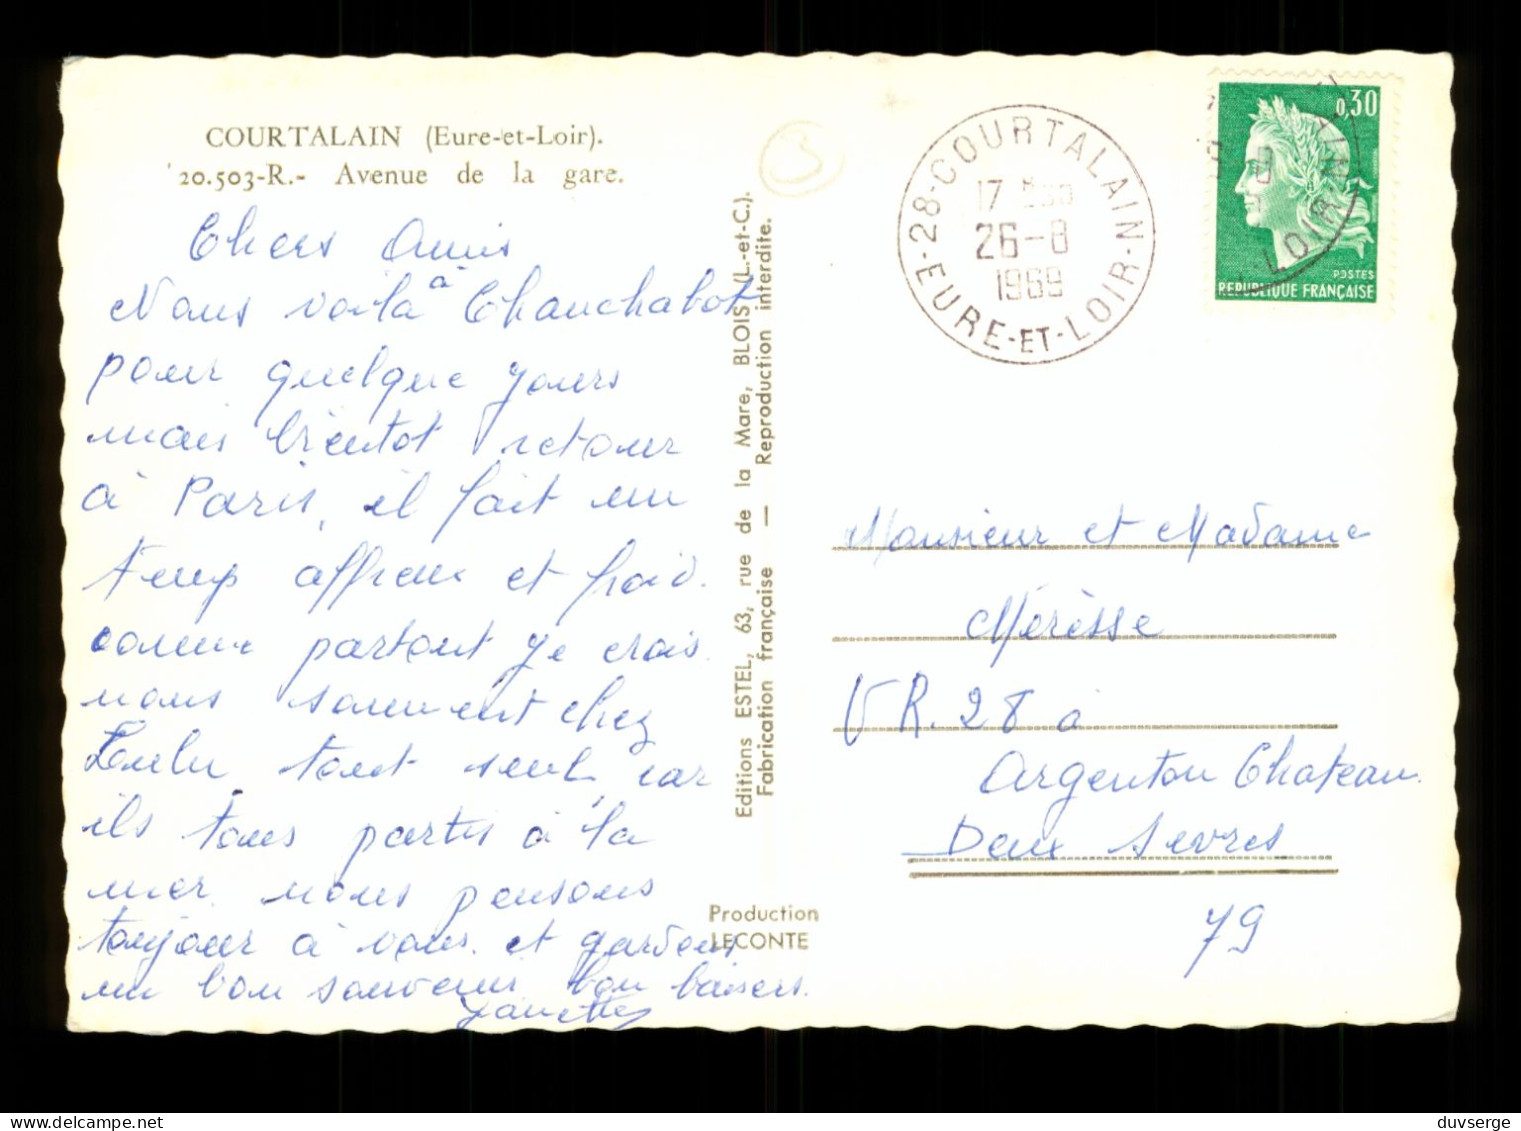 COURTALAIN (Eure-et-Loir).
20.503-R.- Avenue de la gare.
Chers Amis
Nous voila à Chauchabot
pour quelque jours
mais bientot retour
à Paris, il fait un
temp affreux et froid.
comme partout je crois.
nous sommes chez
Lulu tout seul, car
ils tous partis à la
mer. nous pensons
toujour à vous. et gardons
un bon souvenir bon baisers.
Editions ESTEL, 63, rue de la Mare, BLOIS (L.-et-C.).
Fabrication française — Reproduction interdite.
Production
LECONTE
3
28-COURTALAIN
17
26-8
1969
EURE-ET-LOIR
0,30
POSTES
REPUBLIQUE FRANÇAISE
LOIR
Monsieur et Madame
Mérèsse
V R. 28 à
Argenton Chateau
Deux Sevres
79
duvserge